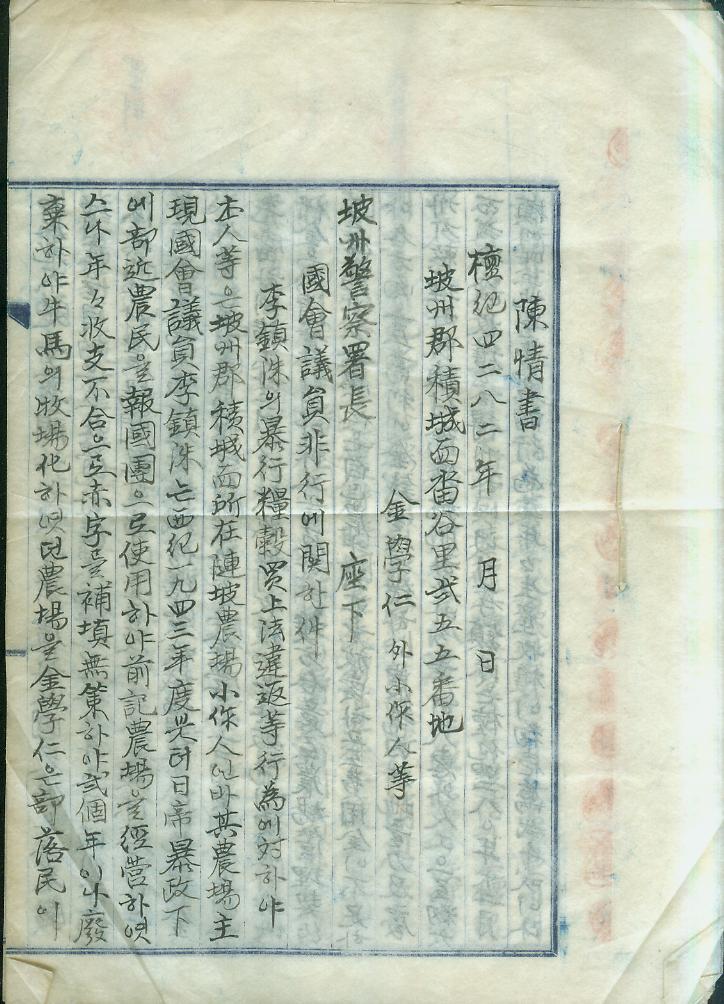 陳情書
檀紀四二八二年 月 日
坡州郡積城面畓谷里弐五五番地
金學仁 外小作人 等
坡州警察署長 座下
國會議員非行에関한件
李鎮洙의暴行糧穀買上法違返等行為에対하야
本人等은坡州郡積城面所在陣坡農場小作人인바其農場主
現國會議員李鎮洙는西紀一九四三年度붓터日帝暴政下
에部近農民을報國團으로使用하야前記農場을經營하엿
스나年々收支不合으로赤字를補填無策하야弐個年이나廢
棄하야牛馬의牧場化하엿던農場을金學仁은部落民이